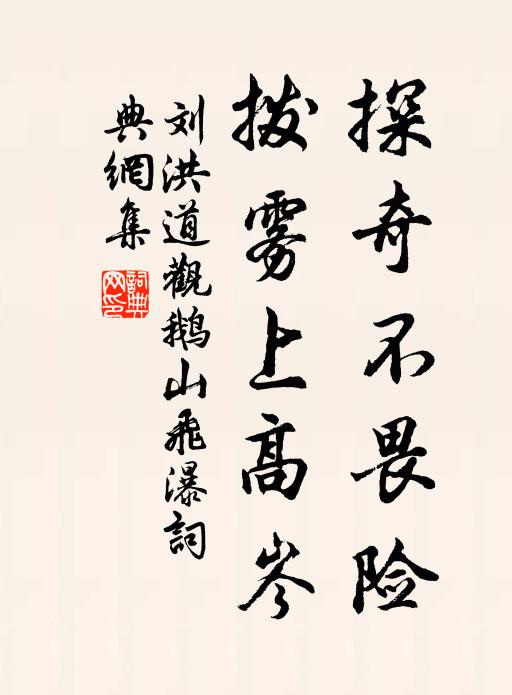 探奇不畏险
拨雾上高岑
刘洪道觀鹅山飛瀑詞
典網集
詞典网印